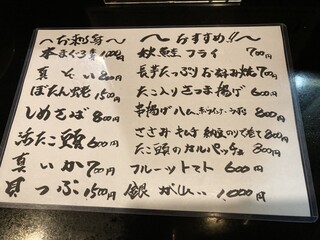 〜お刺身〜
本まぐろ 1000円
真そい 800円
ぼたん蛯 1500円
しめさば 800円
活たこ頭 600円
真いか 700円
貝つぶ 1500円
〜おすすめ!!〜
秋鮭フライ 700円
長芋たっぷりお好み焼 700円
たこ入りさつま揚げ 600円
串揚げ 600円
ささみ 納豆のりで巻て 880円
たこ頭のカルパッチョ 800円
フルーツトマト 600円
銀がれい 1,000円